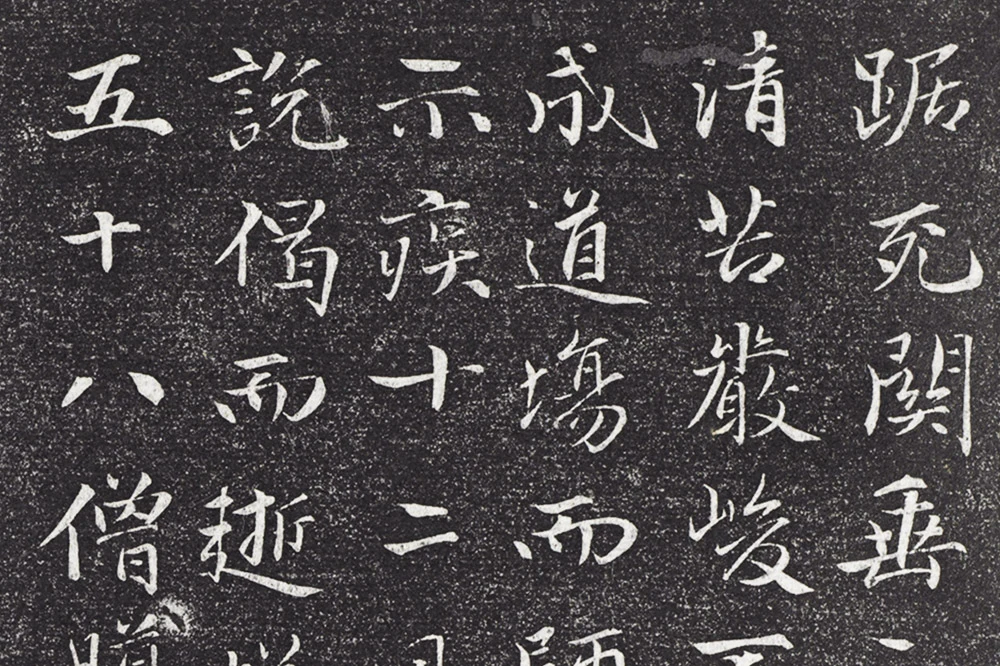 踞死關垂
清苦嚴峻
成道場而師
示疾十二月
說偈而逝
五十八僧